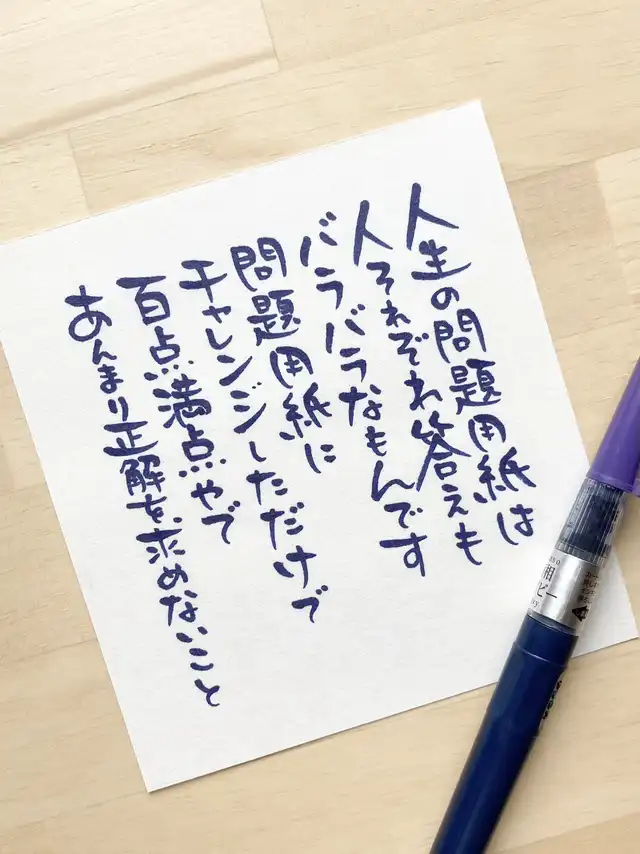 人生の問題用紙は
人それぞれ答えも
バラバラなもんです
問題用紙に
チャレンジしただけで
百点満点やで
あんまり正解を求めないこと